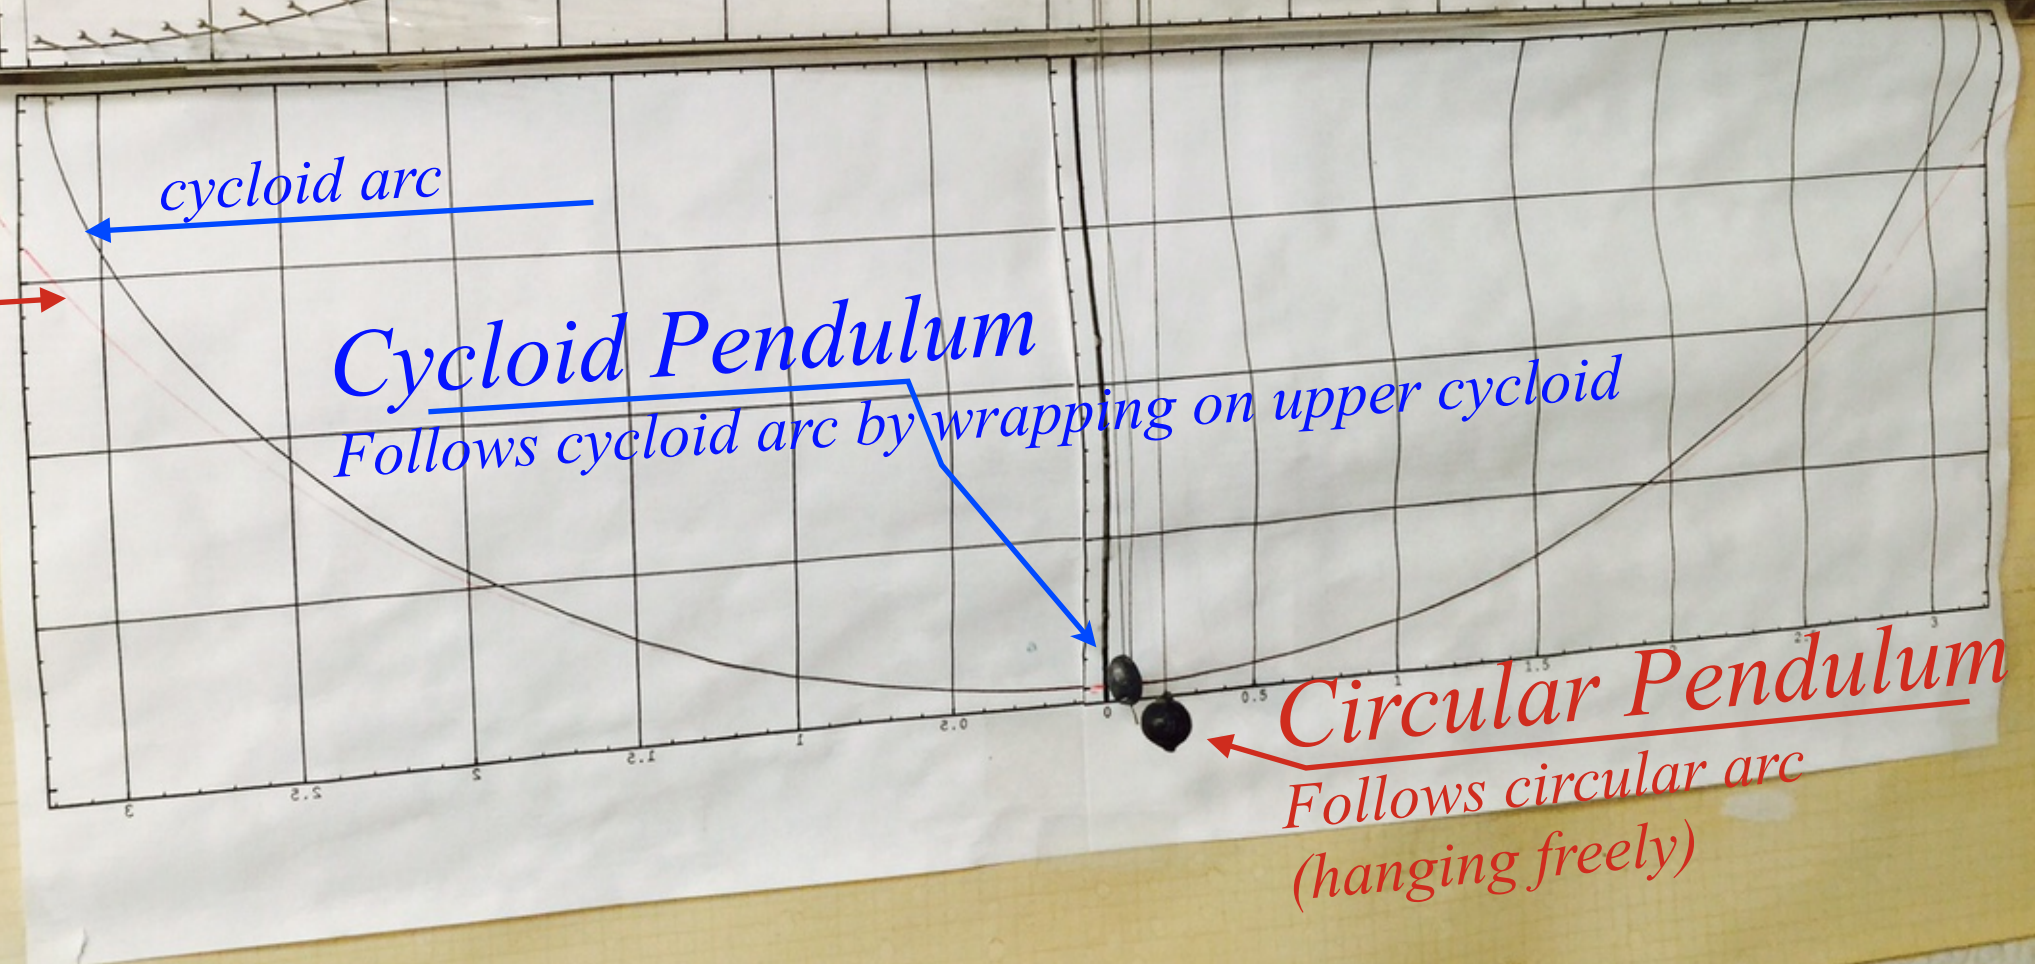 cycloid arc
Cycloid Pendulum
Follows cycloid arc by wrapping on upper cycloid
Circular Pendulum
Follows circular arc
(hanging freely)
3 2.5 2 1.5 1 0.5 0 0.5 1 1.5 2 3